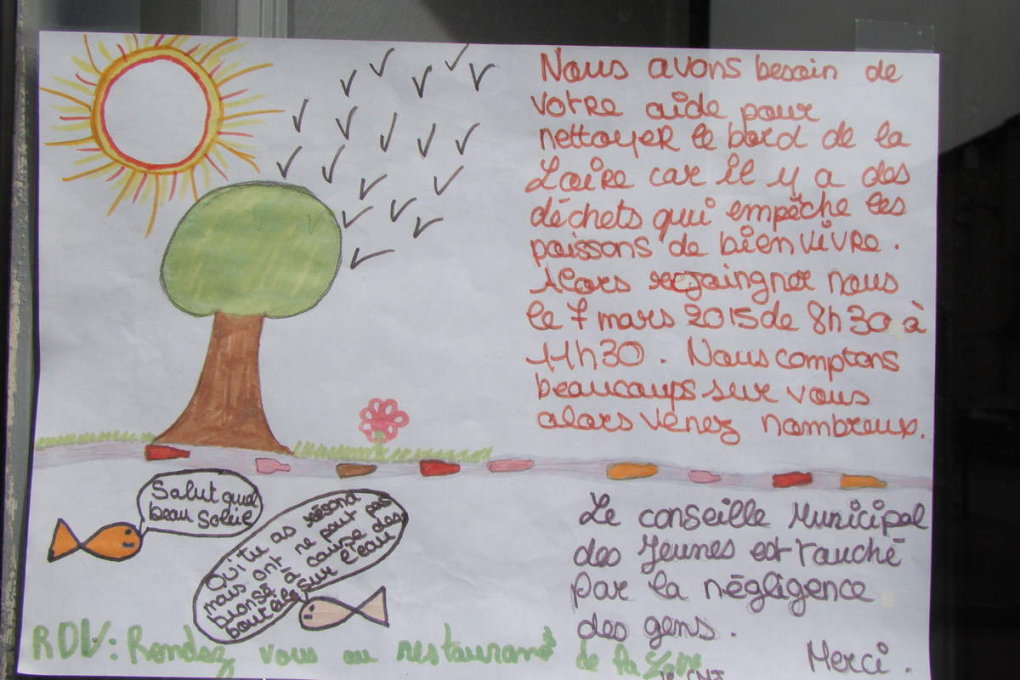 Nous avons besoin de
votre aide pour
nettoyer le bord de la
Loire car il y a des
déchets qui empêche les
poissons de bien vivre.
Alors rejoingnez nous
le 7 mars 2015 de 8h30 à
11h30. Nous comptons
beaucoups sur vous
alors venez nombreux.
Salut quel
beau soleil
Oui tu as
mais ont ne peut pas
bronsé à cause des
sur l'eau
Le conseille Municipal
des Jeunes est touché
par la négligence
des gens.
Merci.
RDV: Rendez vous au restaurant de la Loire
le CMJ